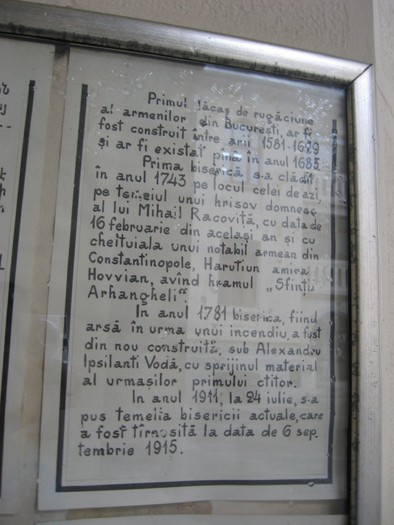 Primul lăcaş de rugăciune
al armenilor din Bucureşti, ar fi
fost construit între anii 1581-1629
şi ar fi existat pînă în anul 1685
Prima biserică s-a clădit
în anul 1743 pe locul celei de azi,
pe temeiul unui hrisov domnesc
al lui Mihail Racoviţă, cu data de
16 februarie din acelaşi an şi cu
cheltuiala unui notabil armean din
Constantinopole, Harutiun amira
Hovvian, avînd hramul „Sfinţii
Arhangheli".
In anul 1781 biserica, fiind
arsă în urma unui incendiu, a fost
din nou construită, sub Alexandru
Ipsilanti Vodă, cu sprijinul material
al urmaşilor primului ctitor.
In anul 1911, la 24 iulie, s-a
pus temelia bisericii actuale, care
a fost tîrnosită la data de 6 sep
tembrie 1915.